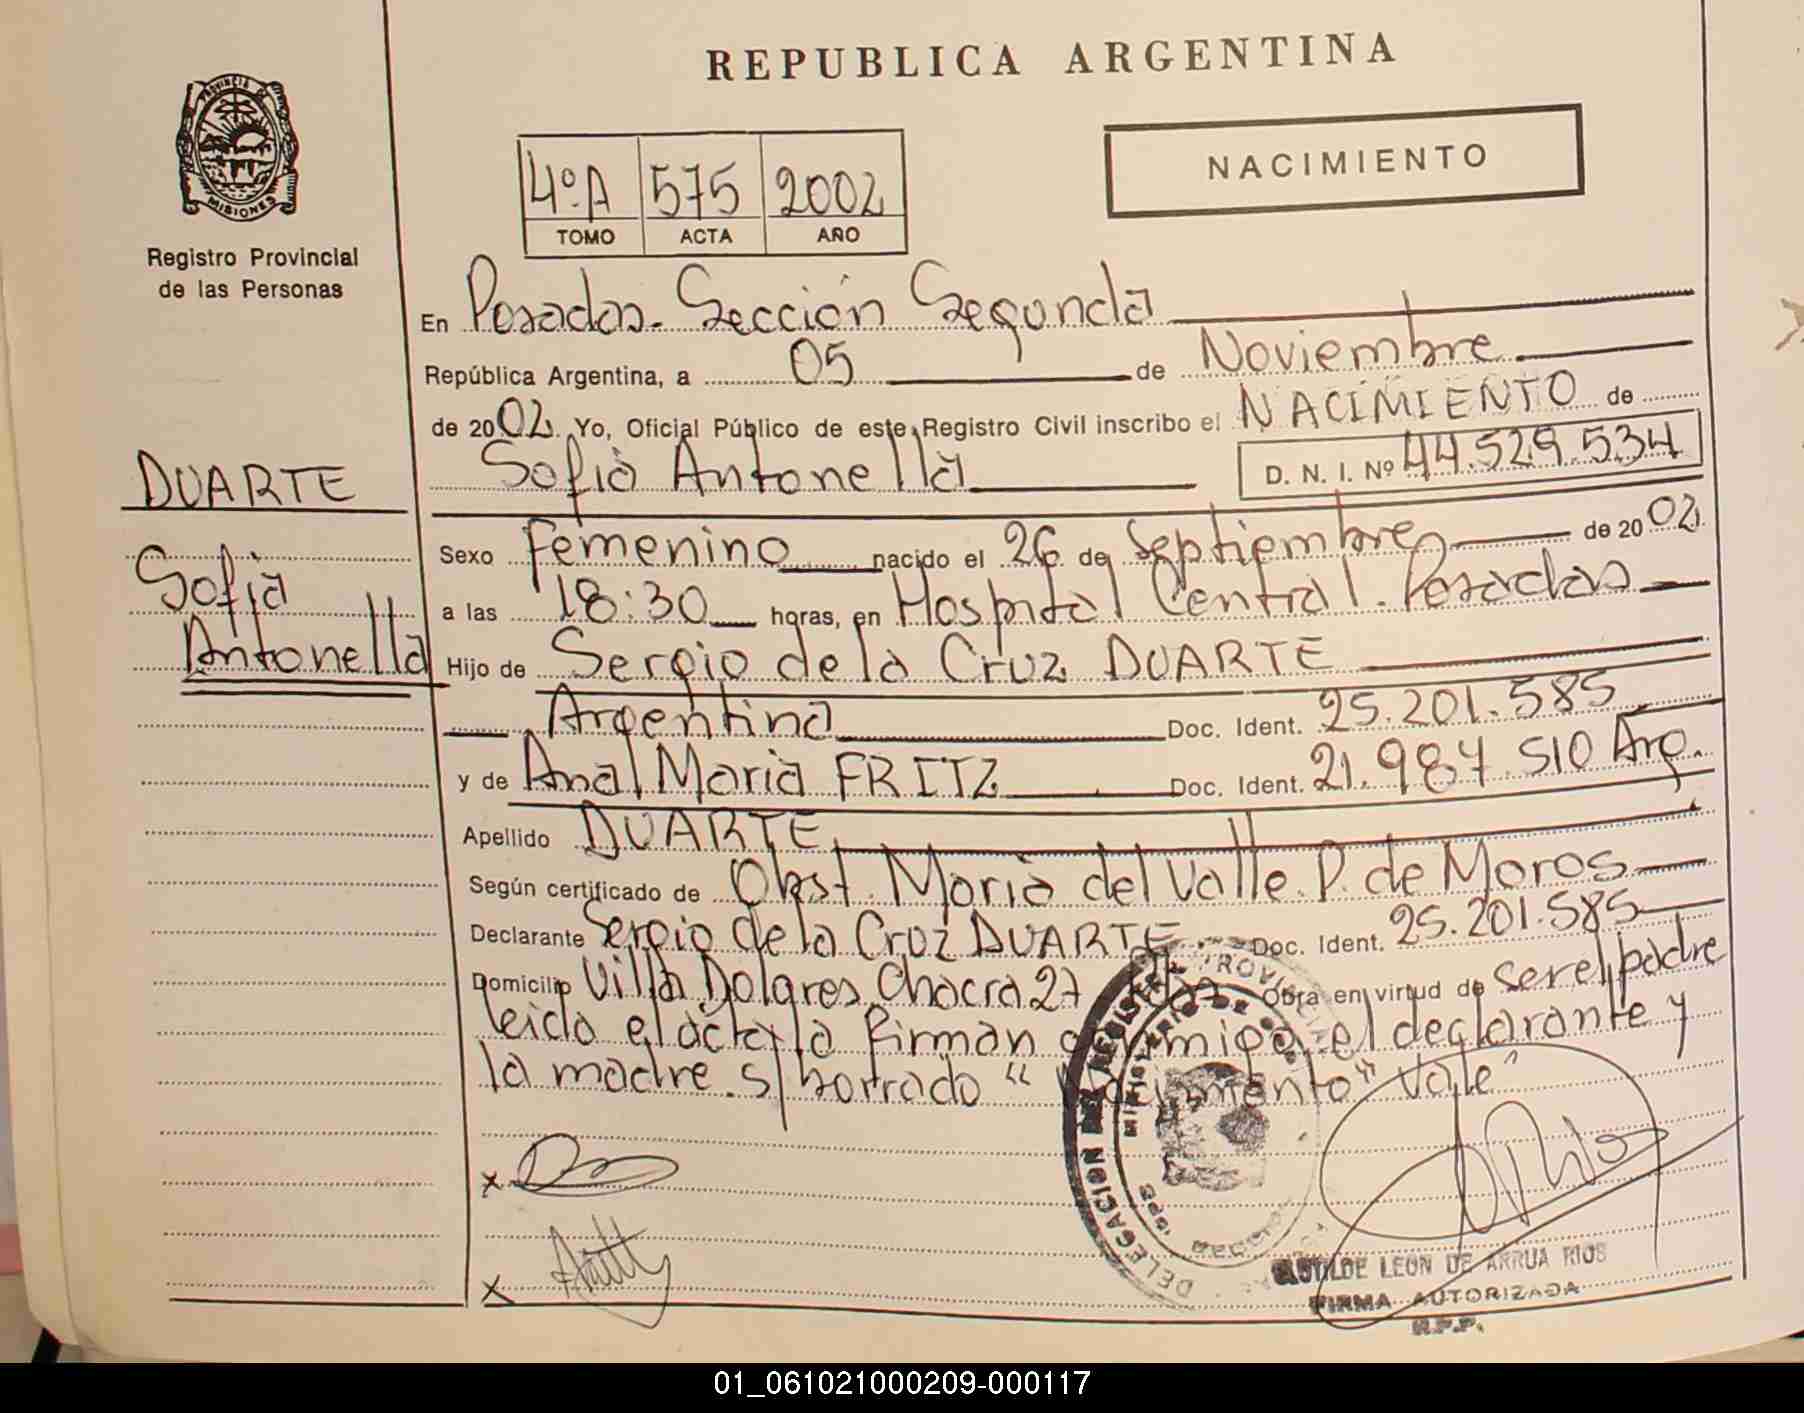 REPUBLICA ARGENTINA
PROVINCIA DE
MISIONES
Registro Provincial
de las Personas
4º A 575 2002
TOMO ACTA AÑO
NACIMIENTO
En Posadas. Sección Segunda
República Argentina, a 05 de Noviembre
de 2002 Yo, Oficial Público de este Registro Civil inscribo el NACIMIENTO de
Sofia Antonella D. N. I. Nº 44.529.534
DUARTE
Sofia
Antonella
Sexo Femenino nacido el 26 de Septiembre de 2002
a las 18:30 horas, en Hospital Central. Posadas
Hijo de Sergio de la Cruz DUARTE
Argentina Doc. Ident. 25.201.585
y de Ana Maria FRITZ Doc. Ident. 21.987.510 Arg.
Apellido DUARTE
Según certificado de Obst. Maria del Valle P. de Moros
Declarante Sergio de la Cruz DUARTE Doc. Ident. 25.201.585
Domicilio Villa Dolores Chacra 27 Obra en virtud de ser el padre
leido el acta la firman el declarante y
la madre. s/ borrado " Nacimiento" Vale"
DELEGACION MINISTERIO DE
LEON DE ARRUA RIOS
FIRMA AUTORIZADA
R.P.P.
01_061021000209-000117